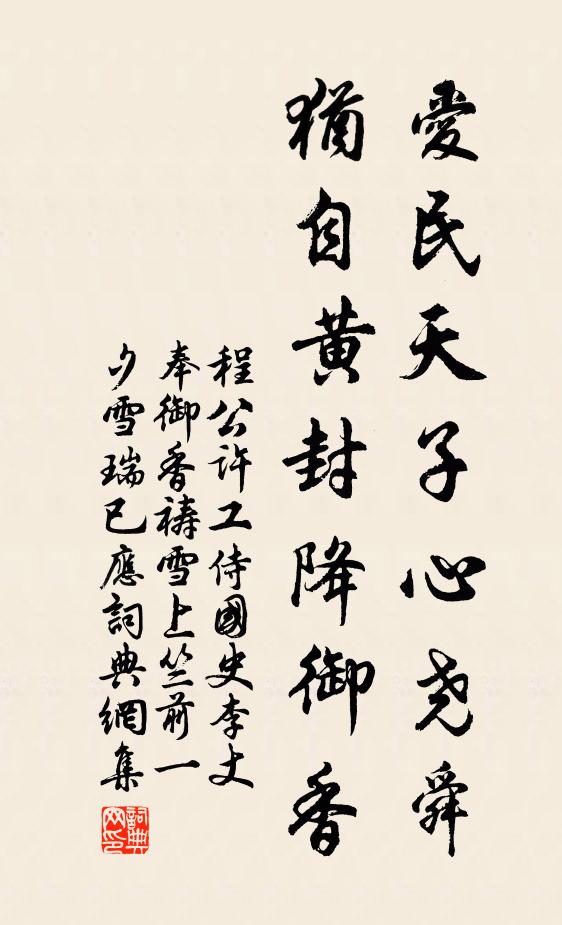 愛民天子心尧舜
猶自黃封降御香
程公許工侍國史李丈
奉御香禱雪上竺前一
夕雪瑞已應詞典網集
詞典
网印